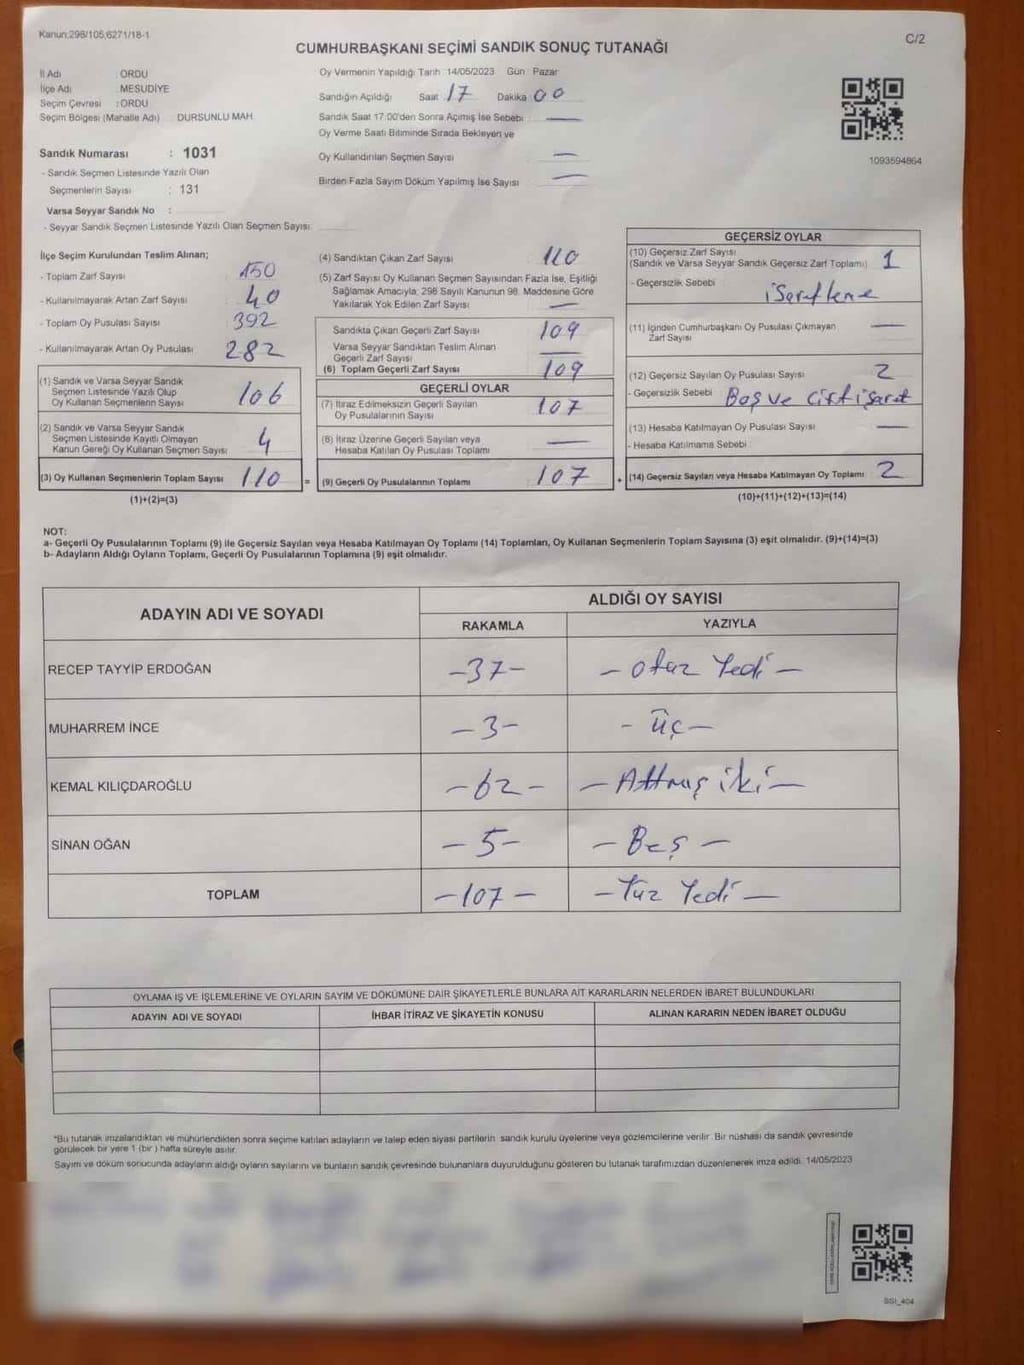 Kanun:298/105,6271/18-1
C/2
CUMHURBAŞKANI SEÇİMİ SANDIK SONUÇ TUTANAĞI
İl Adı : ORDU
İlçe Adı : MESUDİYE
Seçim Çevresi : ORDU
Seçim Bölgesi (Mahalle Adı) DURSUNLU MAH.
Sandık Numarası : 1031
- Sandık Seçmen Listesinde Yazılı Olan
Seçmenlerin Sayısı : 131
Varsa Seyyar Sandık No :
- Seyyar Sandık Seçmen Listesinde Yazılı Olan Seçmen Sayısı:
Oy Vermenin Yapıldığı Tarih 14/05/2023 Gün Pazar
Sandığın Açıldığı Saat 17 Dakika 00
Sandık Saat 17:00'den Sonra Açımış İse Sebebi —
Oy Verme Saati Bitiminde Sırada Bekleyen ve
Oy Kullandırılan Seçmen Sayısı —
Birden Fazla Sayım Döküm Yapılmış İse Sayısı —
1093594864
İlçe Seçim Kurulundan Teslim Alınan;
- Toplam Zarf Sayısı 150
- Kullanılmayarak Artan Zarf Sayısı 40
- Toplam Oy Pusulası Sayısı 392
- Kullanılmayarak Artan Oy Pusulası 282
(1) Sandık ve Varsa Seyyar Sandık
Seçmen Listesinde Yazılı Olup
Oy Kullanan Seçmenlerin Sayısı 106
(2) Sandık ve Varsa Seyyar Sandık
Seçmen Listesinde Kayıtlı Olmayan
Kanun Gereği Oy Kullanan Seçmen Sayısı 4
(3) Oy Kullanan Seçmenlerin Toplam Sayısı 110
=
(1)+(2)=(3)
(4) Sandıktan Çıkan Zarf Sayısı 110
(5) Zarf Sayısı Oy Kullanan Seçmen Sayısından Fazla İse, Eşitliği
Sağlamak Amacıyla, 298 Sayılı Kanunun 98. Maddesine Göre
Yakılarak Yok Edilen Zarf Sayısı —
Sandıkta Çıkan Geçerli Zarf Sayısı 109
Varsa Seyyar Sandıktan Teslim Alınan
Geçerli Zarf Sayısı —
(6) Toplam Geçerli Zarf Sayısı 109
GEÇERLİ OYLAR
(7) İtiraz Edilmeksizin Geçerli Sayılan
Oy Pusulalarının Sayısı 107
(8) İtiraz Üzerine Geçerli Sayılan veya
Hesaba Katılan Oy Pusulası Toplamı —
(9) Geçerli Oy Pusulalarının Toplamı 107
+
GEÇERSİZ OYLAR
(10) Geçersiz Zarf Sayısı
(Sandık ve Varsa Seyyar Sandık Geçersiz Zarf Toplamı) 1
- Geçersizlik Sebebi işaretleme
(11) İçinden Cumhurbaşkanı Oy Pusulası Çıkmayan
Zarf Sayısı —
(12) Geçersiz Sayılan Oy Pusulası Sayısı 2
- Geçersizlik Sebebi Boş ve Çift işaret
(13) Hesaba Katılmayan Oy Pusulası Sayısı —
- Hesaba Katılmama Sebebi :
(14) Geçersiz Sayılan veya Hesaba Katılmayan Oy Toplamı 2
(10)+(11)+(12)+(13)=(14)
NOT:
a- Geçerli Oy Pusulalarının Toplamı (9) ile Geçersiz Sayılan veya Hesaba Katılmayan Oy Toplamı (14) Toplamları, Oy Kullanan Seçmenlerin Toplam Sayısına (3) eşit olmalıdır. (9)+(14)=(3)
b- Adayların Aldığı Oyların Toplamı, Geçerli Oy Pusulalarının Toplamına (9) eşit olmalıdır.
ADAYIN ADI VE SOYADI ALDIĞI OY SAYISI
RAKAMLA YAZIYLA
RECEP TAYYİP ERDOĞAN -37- - otuz Yedi -
MUHARREM İNCE -3- - üç -
KEMAL KILIÇDAROĞLU -62- - Altmış iki -
SİNAN OĞAN -5- - Beş -
TOPLAM -107- - Yüz Yedi -
OYLAMA İŞ VE İŞLEMLERİNE VE OYLARIN SAYIM VE DÖKÜMÜNE DAİR ŞİKAYETLERLE BUNLARA AİT KARARLARIN NELERDEN İBARET BULUNDUKLARI
ADAYIN ADI VE SOYADI İHBAR İTİRAZ VE ŞİKAYETİN KONUSU ALINAN KARARIN NEDEN İBARET OLDUĞU
*Bu tutanak imzalandıktan ve mühürlendikten sonra seçime katılan adayların ve talep eden siyasi partilerin sandık kurulu üyelerine veya gözlemcilerine verilir. Bir nüshası da sandık çevresinde
görülecek bir yere 1 (bir) hafta süreyle asılır.
Sayım ve döküm sonucunda adayların aldığı oyların sayılarını ve bunların sandık çevresinde bulunanlara duyurulduğunu gösteren bu tutanak tarafımızdan düzenlenerek imza edildi. 14/05/2023
SSI_404